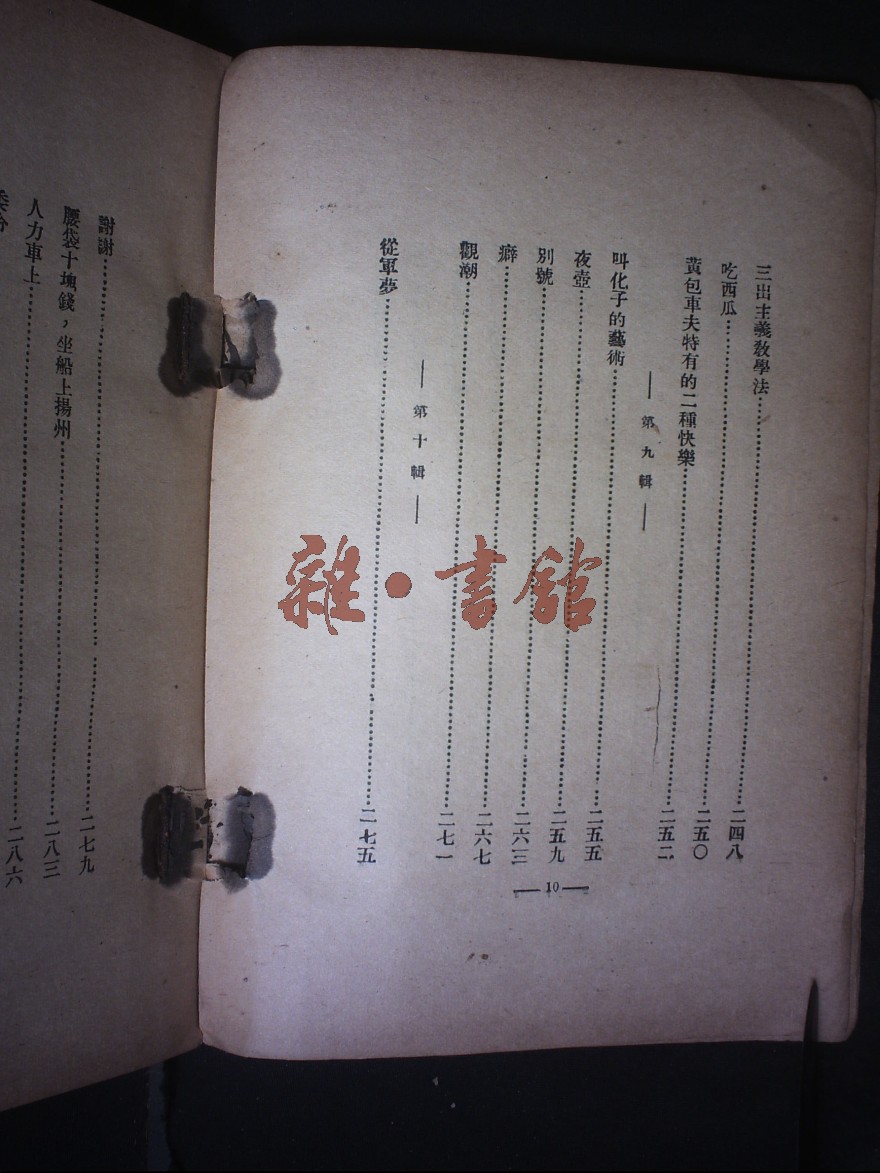 三出主義教學法……二四八
吃西瓜……二五〇
黃包車夫特有的二種快樂……二五二
——第九輯——
叫化子的藝術……二五五
夜壺……二五九
別號……二六三
癖……二六七
觀潮……二七一
——第十輯——
從軍夢……二七五
—10—
謝謝……二七九
腰袋十塊錢，坐船上揚州……二八三
人力車上……二八六
雜·書館